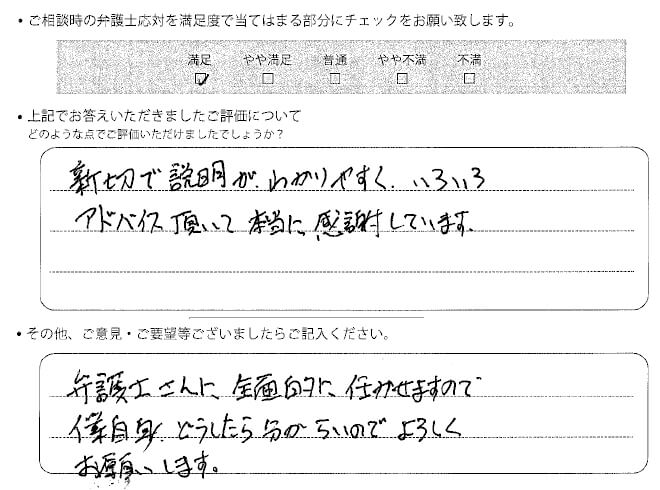 ・ご相談時の弁護士応対を満足度で当てはまる部分にチェックをお願い致します。
満足 やや満足 普通 やや不満 不満
・上記でお答えいただきましたご評価について
どのような点でご評価いただけましたでしょうか？
新切で説明が、わかりやすく、いろいろ
アドバイス頂いて本当に、感謝しています。
・その他、ご意見・ご要望等ございましたらご記入ください。
弁護士さんに、全面的に、任かせますので
僕自身、どうしたら分からいのでよろしく
お願いします。